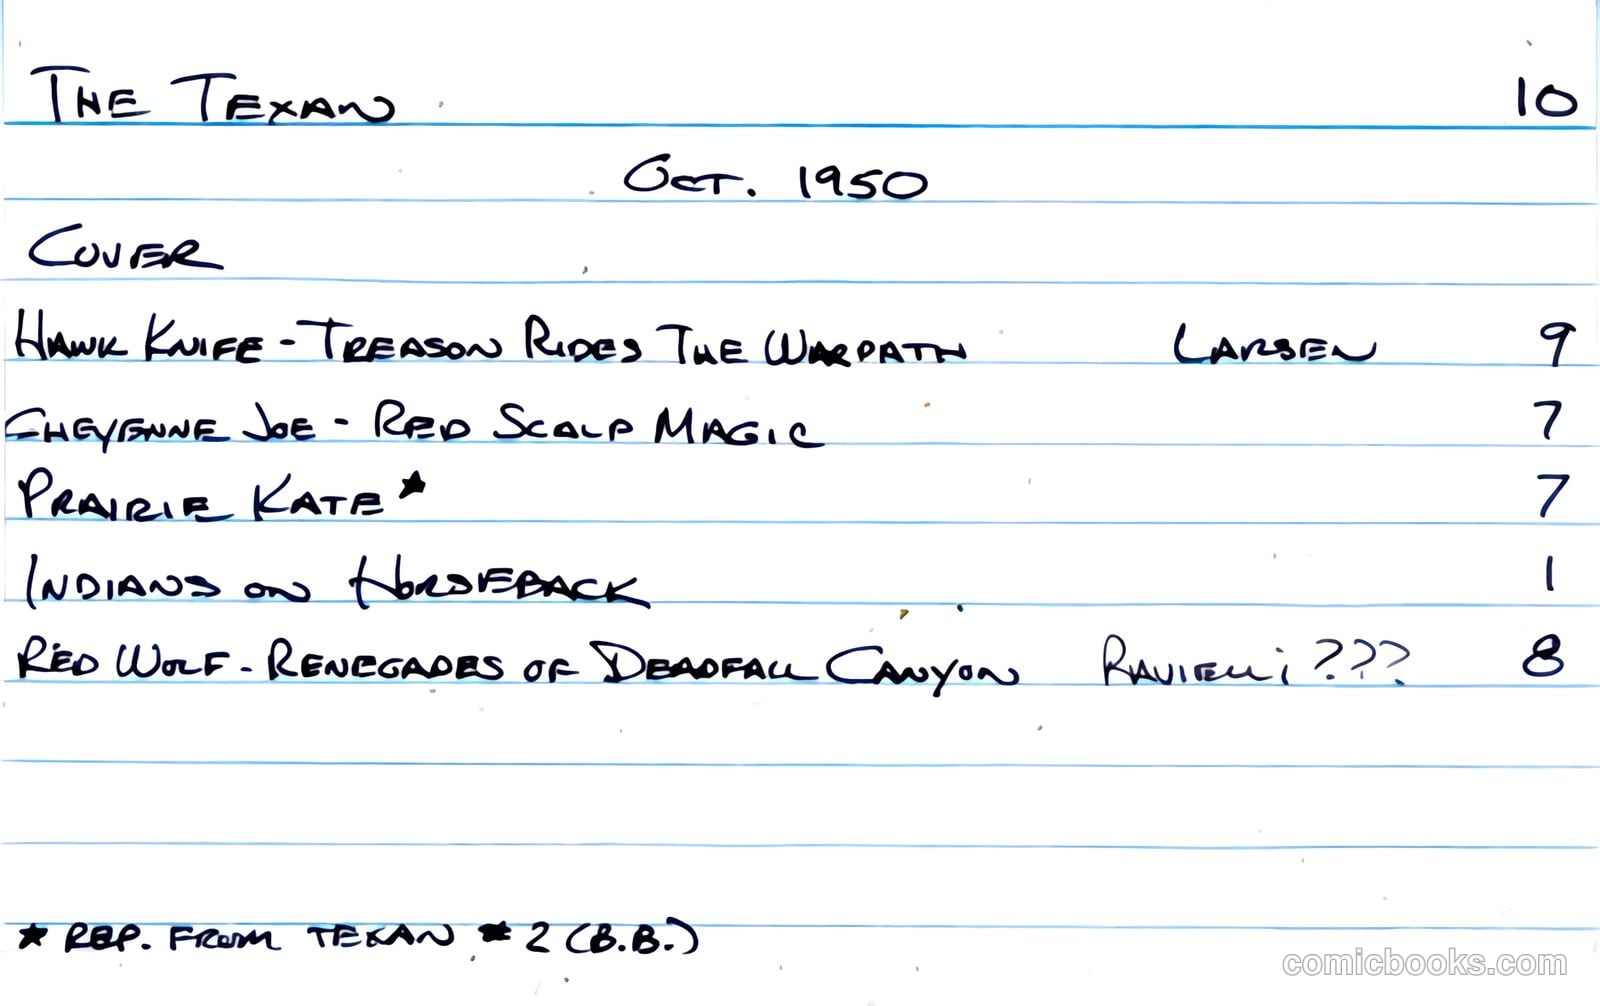 THE TEXAN 10
OCT. 1950
COVER
HAWK KNIFE - TREASON RIDES THE WARPATH LARSEN 9
CHEYENNE JOE - RED SCALP MAGIC 7
PRAIRIE KATE ★ 7
INDIANS ON HORSEBACK 1
RED WOLF - RENEGADES OF DEADFALL CANYON RAVIELLI ??? 8
★ REP. FROM TEXAN # 2 (B.B.)
comicbooks.com